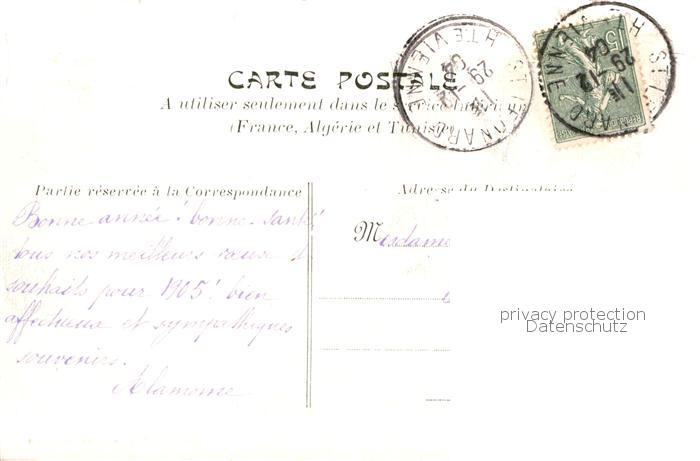 CARTE POSTALE
A utiliser seulement dans le service intérieur
(France, Algérie et Tunisie)
ST LEONARD
HTE VIENNE
11
29-12
04
15
Partie réservée à la Correspondance
Adresse du Destinataire
Bonne année! bonne santé!
tous nos meilleurs vœux et
souhaits pour 1905! bien
affectueux et sympathiques
souvenirs.
Mesdame
privacy protection
Datenschutz